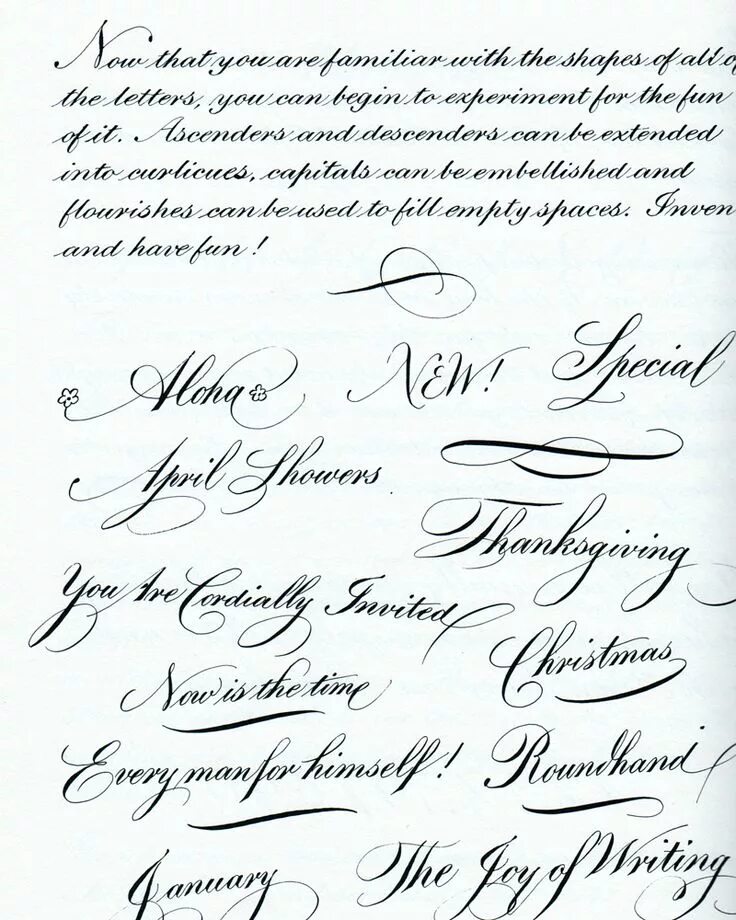 Now that you are familiar with the shapes of all of
the letters, you can begin to experiment for the fun
of it. Ascenders and descenders can be extended
into curlicues, capitals can be embellished and
flourishes can be used to fill empty spaces. Inven
and have fun!
Aloha NEW! Special
April Showers
Thanksgiving
You Are Cordially Invited
Christmas
Now is the time
Every man for himself! Roundhand
January The Joy of Writing